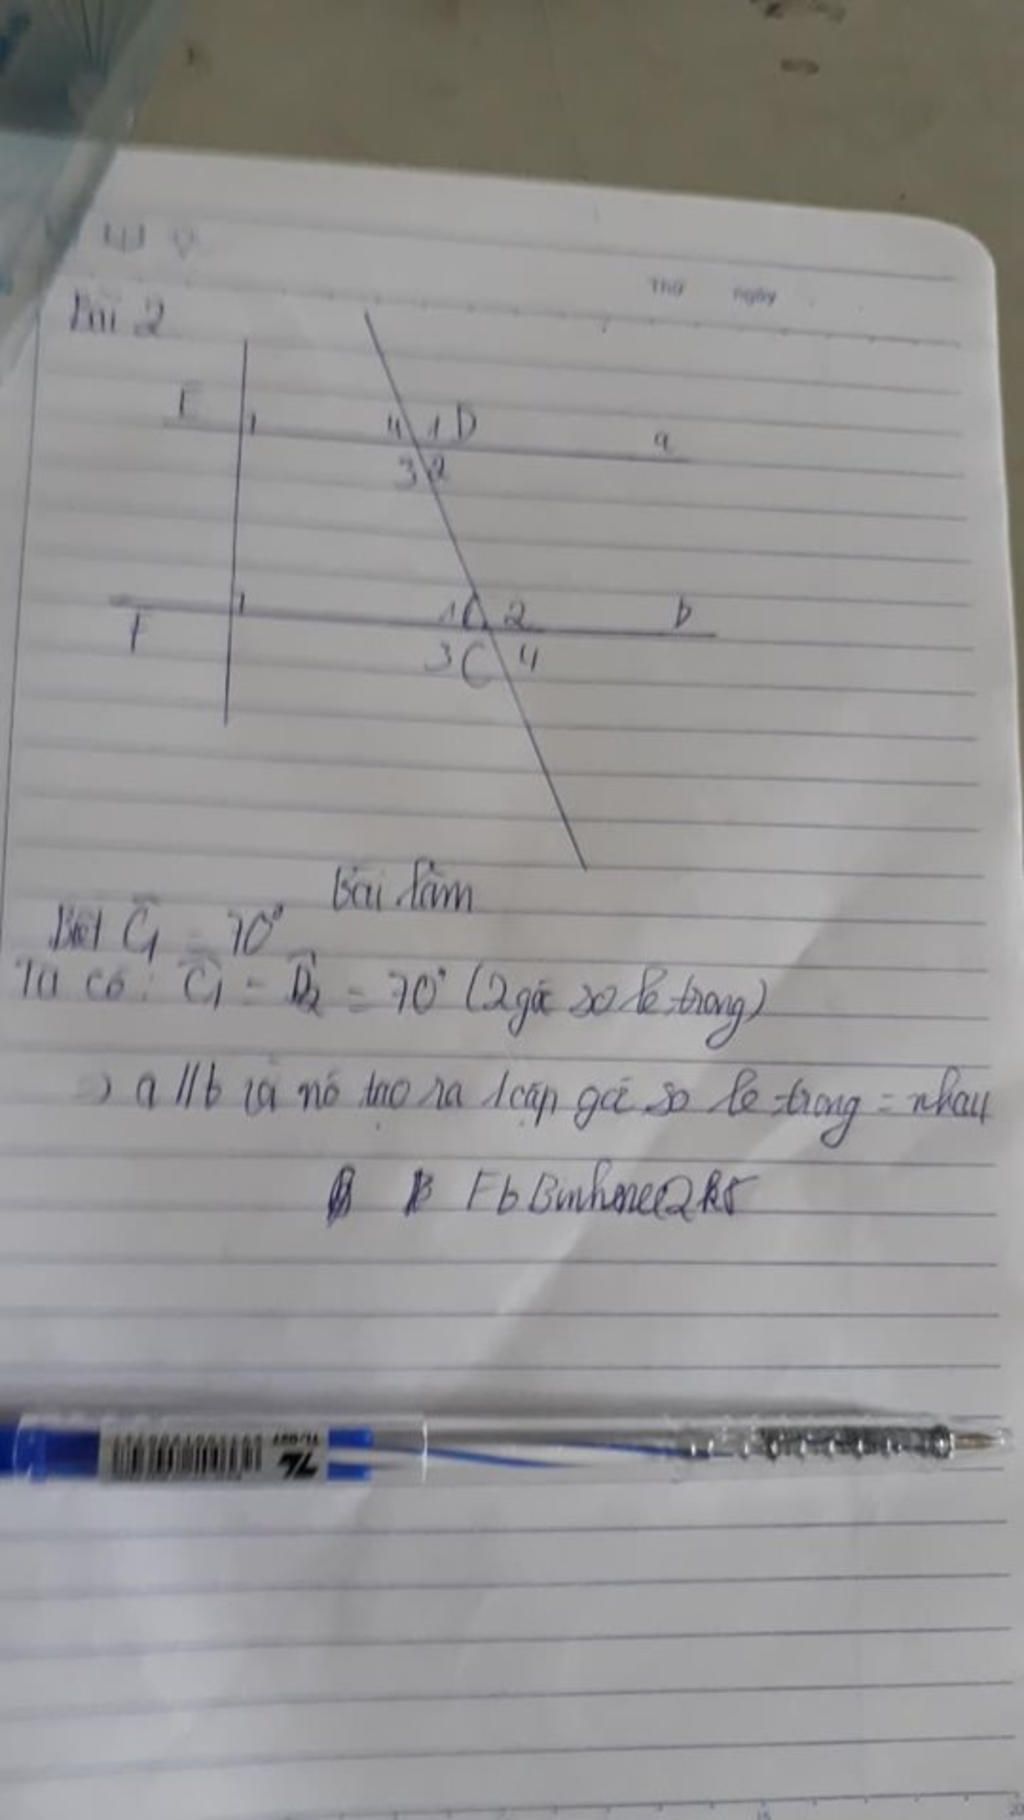 Thứ ngày
Bài 2
E 1 4 1 D a
3 2
1 1 2 b
F 3 C 4
Bài làm
Biết C1 = 70°
Ta có: C1 = D2 = 70° (2 góc so le trong)
=> a // b và nó tạo ra 1 cặp góc so le trong = nhau
Fb
TL-027